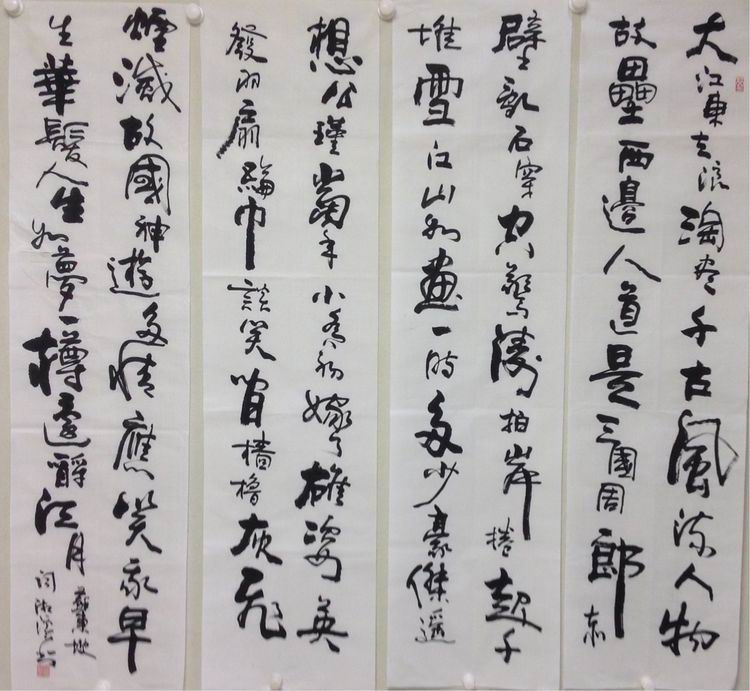 大江東去浪淘尽千古風流人物
故壘西邊人道是三國周郎赤
壁亂石穿空驚濤拍岸捲起千
堆雪江山如畫一時多少豪傑遥
想公瑾當年小喬初嫁了雄姿英
發羽扇綸巾談笑間檣櫓灰飛
煙滅故國神遊多情應笑我早
生華髮人生如夢一樽還酹江月
蘇東坡